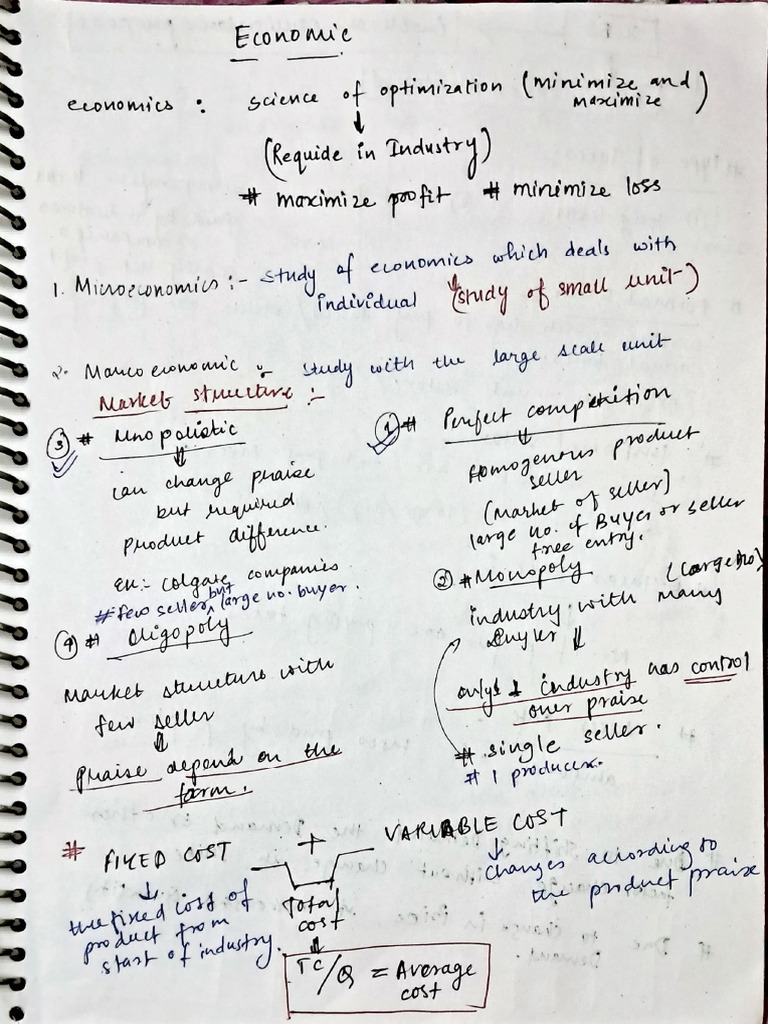 Economic
economics : science of optimization (minimize and maximize)
(Requide in Industry)
# maximize profit # minimize loss
1. Microeconomics :- study of economics which deals with
individual (study of small unit)
2. Marco economic :- study with the large scale unit
Market structure :-
③ # Mnopolistic
can change praise
but required
product difference.
Ex:- Colgate companies
# few seller but large no. buyer.
④ # Oligopoly
Market structure with
few seller
Praise depend on the
farm.
① # Perfect competition
Homogenous product
seller
(market of seller)
large no. of Buyer or seller
free entry.
② # Monopoly (large no)
industry with many
Buyer
only 1 industry has control
over praise
# single seller.
# 1 producer.
# FIXED COST + VARIABLE COST
the fixed cost of
product from
start of industry.
changes according to
the product praise
Total
cost
TC/Q = Average
cost